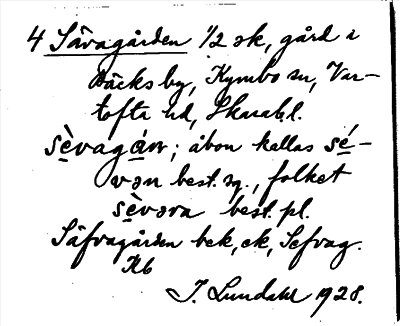 4 Sävagården 1/2 sk, gård i
Bäcks by, Kymbo sn, Var-
tofta hd, Skarab.l.
sèvagán; åbon kallas sé-
vən best. sg., folket
sèvəra best. pl.
Säfvagården bek, ek, Sefvag.
Kb
J. Lundahl 1928.